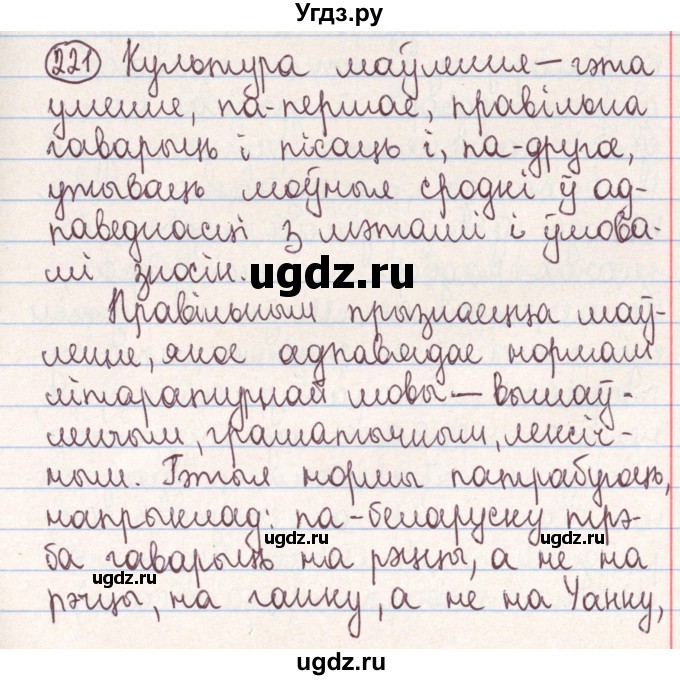 Угдз.ру
221 Культура маўлення — гэта
уменне, па-першае, правільна
гаварыць і пісаць і, па-другое,
ужываць моўныя сродкі ў ад-
паведнасці з мэтамі і ўмова-
мі зносін.
ugdz.ru
Правільным прызнаецца маў-
ленне, якое адпавядае нормам
ugdz.ru
літаратурнай мовы — вымаў-
ленчым, граматычным, лексіч-
ным. Гэтыя нормы патрабуюць,
ugdz.ru
напрыклад: па-беларуску трэ-
ба гаварыць на рэчцы, а не на
ugdz.ru
рэчцы, на ганку, а не на
ugdz.ru